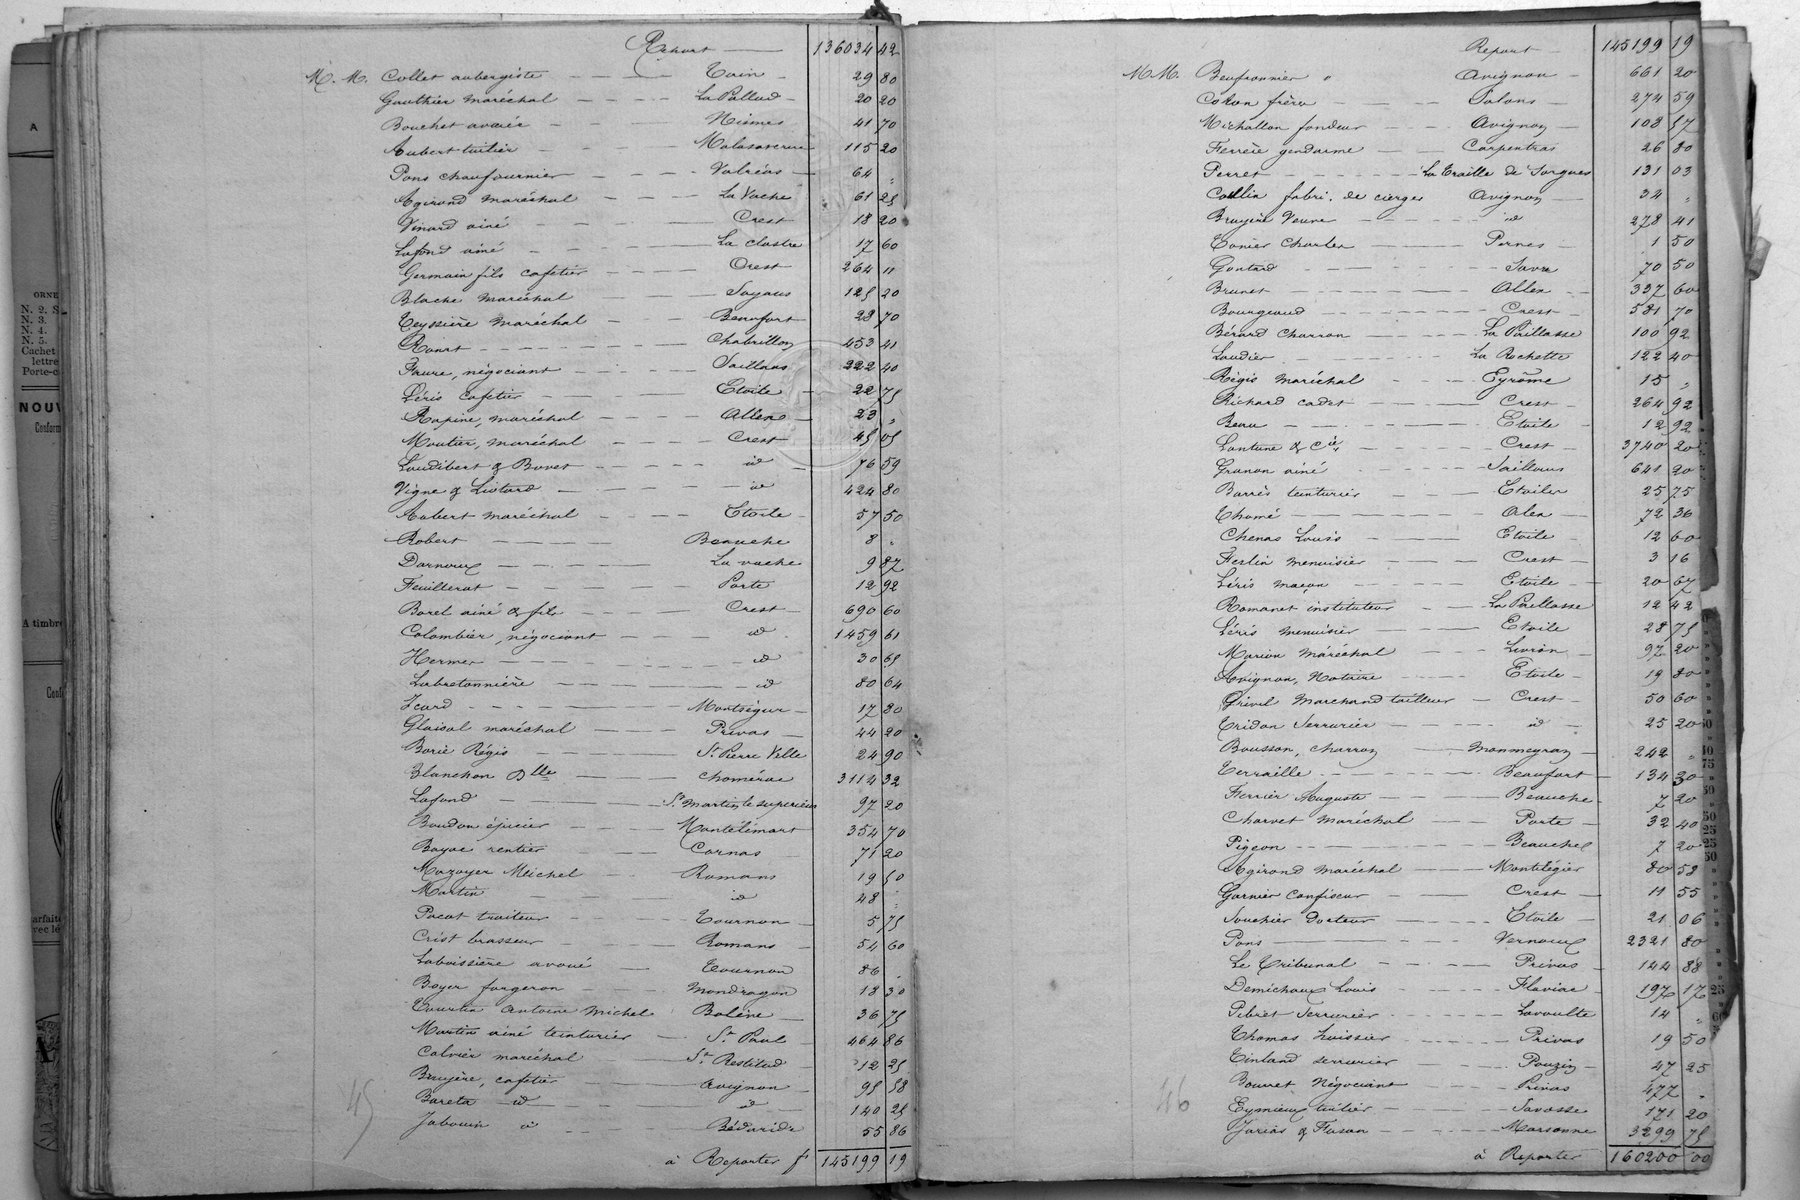 Report — 136034 42
M. M. Collet aubergiste — Tain — 29 80
Gauthier maréchal — La Pallud — 20 20
Bouchet avoué — Nismes — 41 70
Aubert tuilier — Malataverne 115 20
Pons chaufournier — Valréas — 64 "
Agirond maréchal — La Vache 61 25
Vinard ainé — Crest 18 20
Lafond ainé — La clastre 17 60
Germain fils cafetier — Crest 264 11
Blache maréchal — Soyans 125 20
Teyssière maréchal — Beaufort 28 70
Ronat — Chabrillan 453 41
Faure, négociant — Saillans 222 40
Léris cafetier — Etoile — 22 75
Rapine, maréchal — Allex — 23 "
Moutier, maréchal — Crest 45 05
Laudibert & Bovet — id — 76 59
Vigne & Liotard — id 424 80
Aubert maréchal — Etoile 57 50
Robert — Beauche 8 "
Darnoux — La vache 9 87
Feuillerat — Porte 12 92
Borel ainé & fils — Crest 690 60
Colombier, négociant — id 1459 61
Hermer — id 30 65
Labretonnière — id 80 64
Icard — Montségur — 17 80
Glaisol maréchal — Privas — 44 20
Borie Régis — St Pierre Ville 24 90
Blanchon Dlle — Chomérac 3114 32
Lafond — St Martin le superieur 97 20
Boudon épicier — Montélimart 354 70
Boyac rentier — Cornas 71 20
Mazoyer Michel — Romans 19 50
Martin — id 48
Pocat traiteur — Tournon — 5 75
Crist brasseur — Romans — 54 60
Laboissière avoué — Tournon 86
Boyer forgeron — Mondragon 18 30
Tourtin Antoine Michel Bolène — 36 75
Martin ainé teinturier — St Paul 464 86
Calvier maréchal — St Restitud 12 25
Bruyère, cafetier — Avignon — 95 58
Bareta id — id — 140 25
Jabouin id — Bédaride 55 86
à Reporter f 145199 19
45
Report 145199 19
M.M. Beufronnier " Avignon — 661 20
Colon frère — Salons — 274 59
Michallon fondeur — Avignon — 108 57
Ferrèie gendarme — Carpentras 26 80
Perret — La Traille de Sorgues 131 03
Collin fabri. de cierges Avignon — 34 "
Bruyère Veuve — id 278 41
Tanier Charles — Pernes — 1 50
Goutard — 70 50
Brunet — Allex — 337 60
Bourgeaud — Crest — 581 70
Bérard Charron — La Paillasse 100 92
Laudier — La Rochette 122 40
Régis maréchal — Eyrôme 15 "
Richard cadet — Crest — 264 92
Beau — Etoile — 12 92
Lantune & Cie — Crest — 3740 20
Granon ainé — Saillans 641 20
Barrès teinturier — Etoile 25 75
Chomé — Alex — 72 36
Chenas Louis — Etoile — 12 60
Ferlin menuisier — Crest — 3 16
Léris maçon — Etoile — 20 67
Romanet instituteur — La Paillasse 12 42
Léris menuisier — Etoile 28 75
Marion Maréchal — Livron — 97 20
Avignon, Notaire — Etoile — 19 80
Grivel Marchand tailleur — Crest — 50 60
Tridon Serrurier — id — 25 20
Bousson, Charron — Monmeyran — 242 "
Terraille — Beaufort — 134 30
Ferrier Auguste — Beauche — 7 20
Charvet Maréchal — Porte — 32 40
Pigeon — Beauche 7 20
Agirond Maréchal — Montélégier 80 58
Garnier Confiseur — Crest — 11 55
Souchier Docteur — Etoile — 21 06
Pons — Vernoux 2321 80
Le Tribunal — Privas — 144 88
Demichaux Louis — Flaviac — 197 17
Pibret Serrurier — Lavoulte 14 "
Thomas huissier — Privas 19 50
Tinland serrurier — Pouzin — 47 25
Bouvet Négociant — Privas 477 "
Eymieux tuilier — Savasse 171 20
Jarias & Fusan — Marsanne 3299 75
à Reporter 160200 00
46
A
ORNE
N. 2. S
N. 3.
N. 4.
N. 5.
Cachet
lettre
Porte-c
NOUV
Conform
A timbre
Conf
arfaite
vec lé